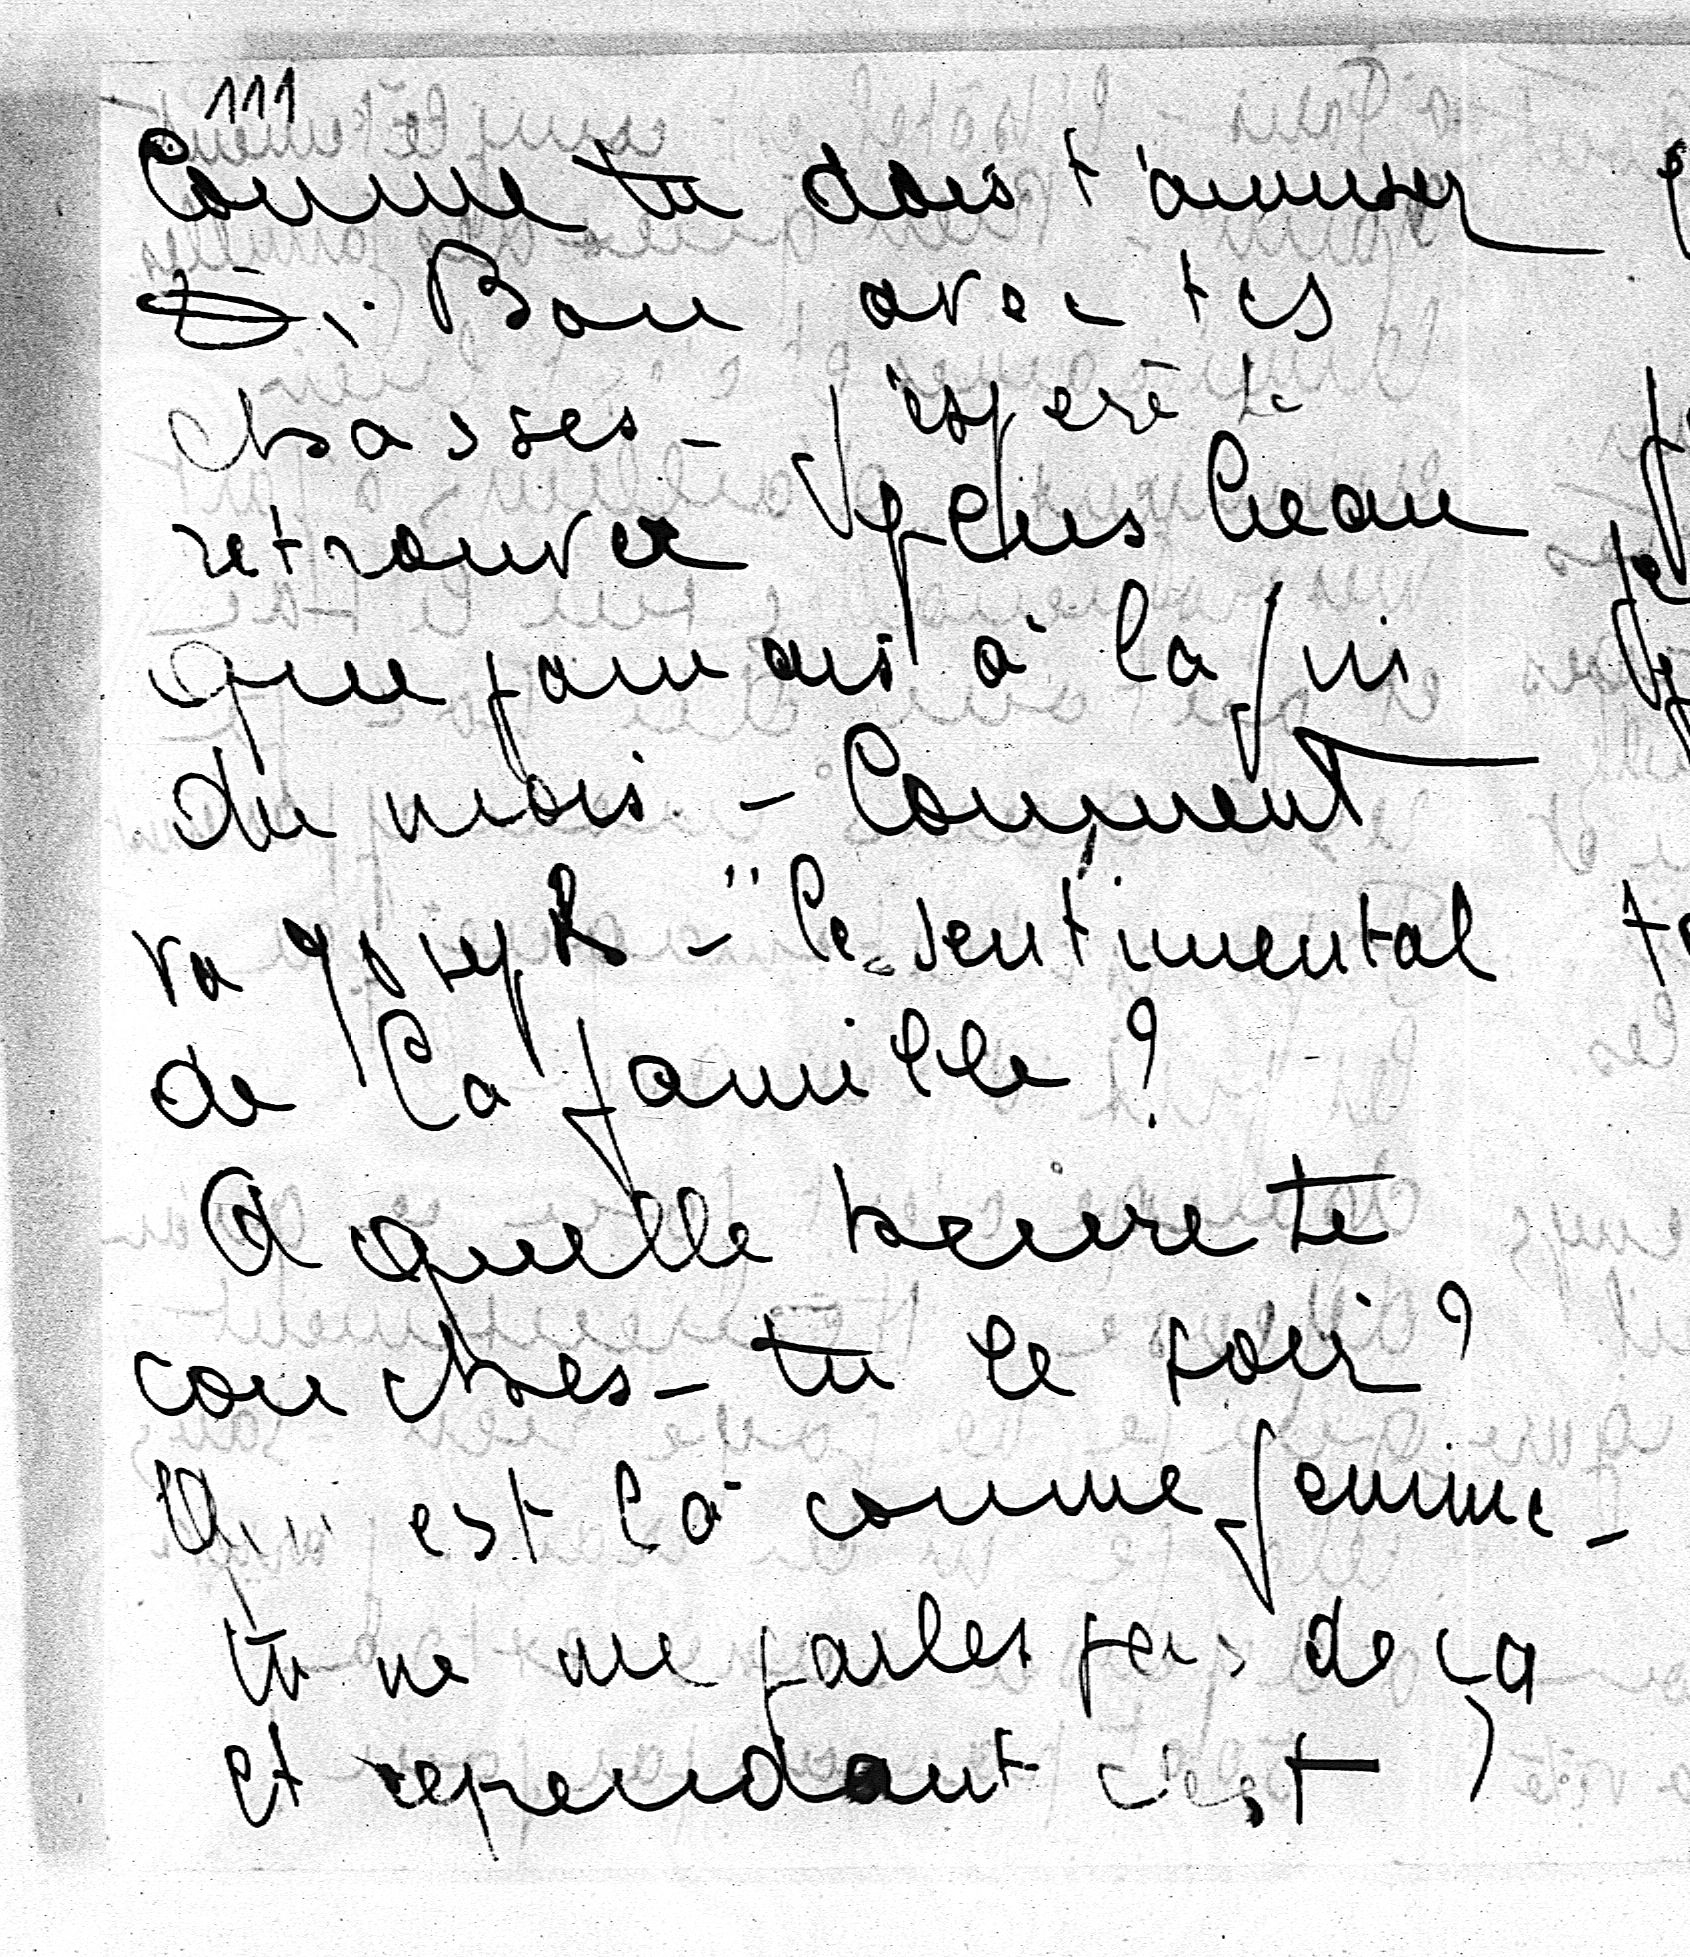 111
Comme tu dois t'amuser
à Bou avec tes
chasses - J'espère te
retrouver plus beau
que jamais à la fin
du mois - Comment
va Joseph - "le sentimental
de la famille ?
A quelle heure te
couches-tu le soir ?
Qui est là comme femme -
tu ne me parles pas de ça
et cependant c'est